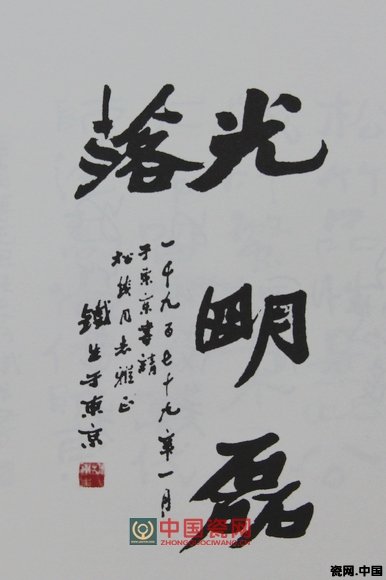 光明磊
落
一千九百七十九年一月
于東京書請
松錢同志雅正
鐵生于東京
中国瓷网
ZHONGGUOCIWANG.CN
瓷网.中国